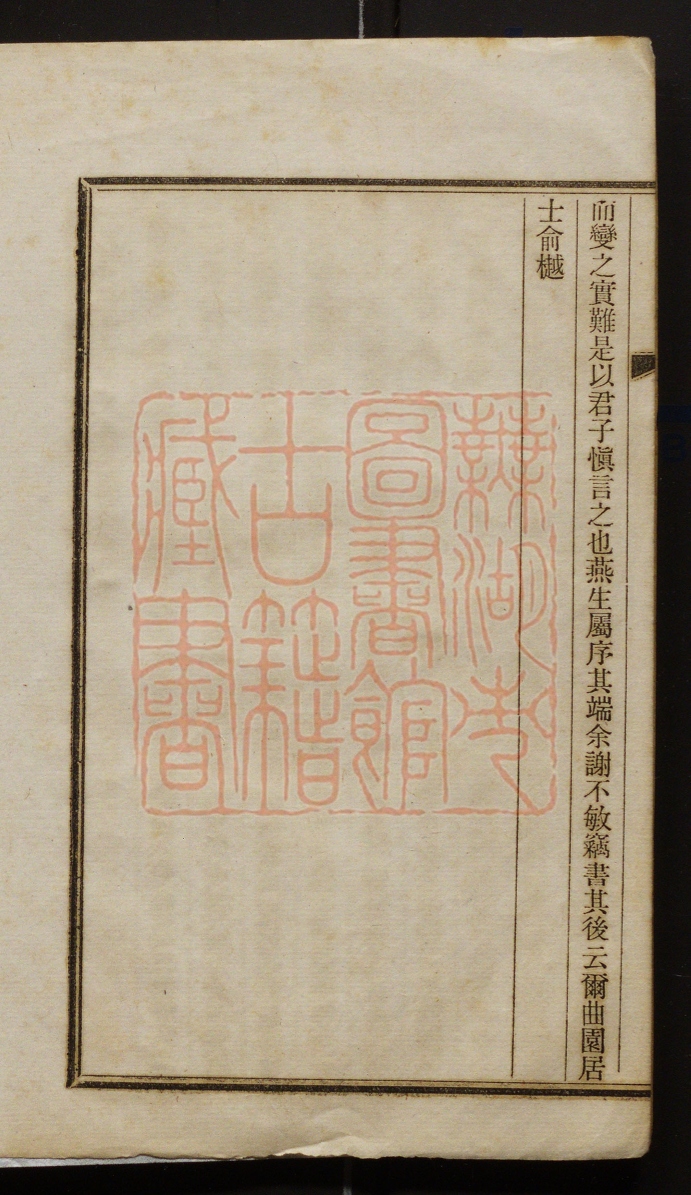 而變之實難是以君子愼言之也燕生屬序其端余謝不敏竊書其後云爾曲園居
士俞樾
蕪湖市
圖書館
古籍
藏書